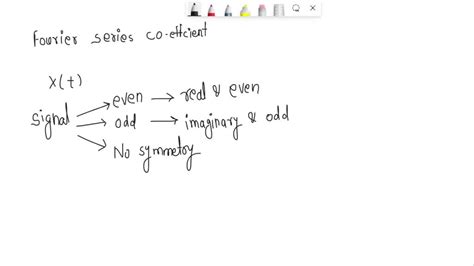 Fourier series co-efficient
X(t)
signal
even → real & even
odd → imaginary & odd
No symmetry